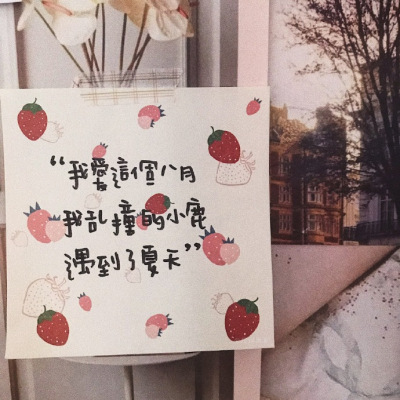 “我愛這個八月
我乱撞的小鹿
遇到了夏天”